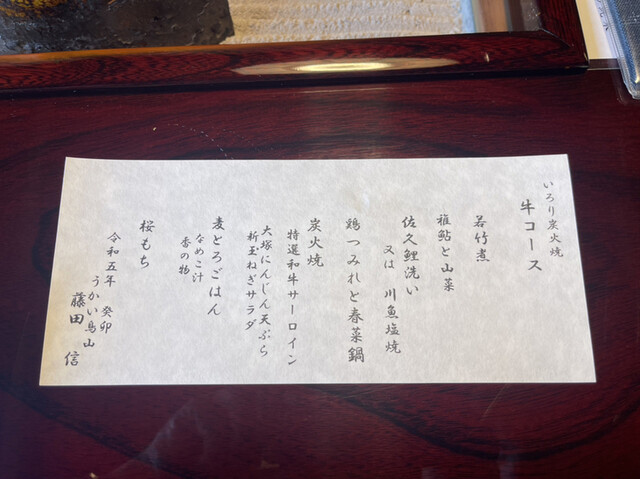 いろり炭火焼
牛コース
若竹煮
稚鮎と山菜
佐久鯉洗い
又は 川魚塩焼
鶏つみれと春菜鍋
炭火焼
特選和牛サーロイン
大塚にんじん天ぷら
新玉ねぎサラダ
麦とろごはん
なめこ汁
香の物
桜もち
令和五年 癸卯
うかい鳥山
藤田 信